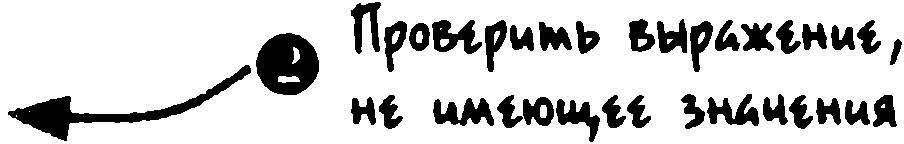 2 Проверить выражение,
не имеющее значения